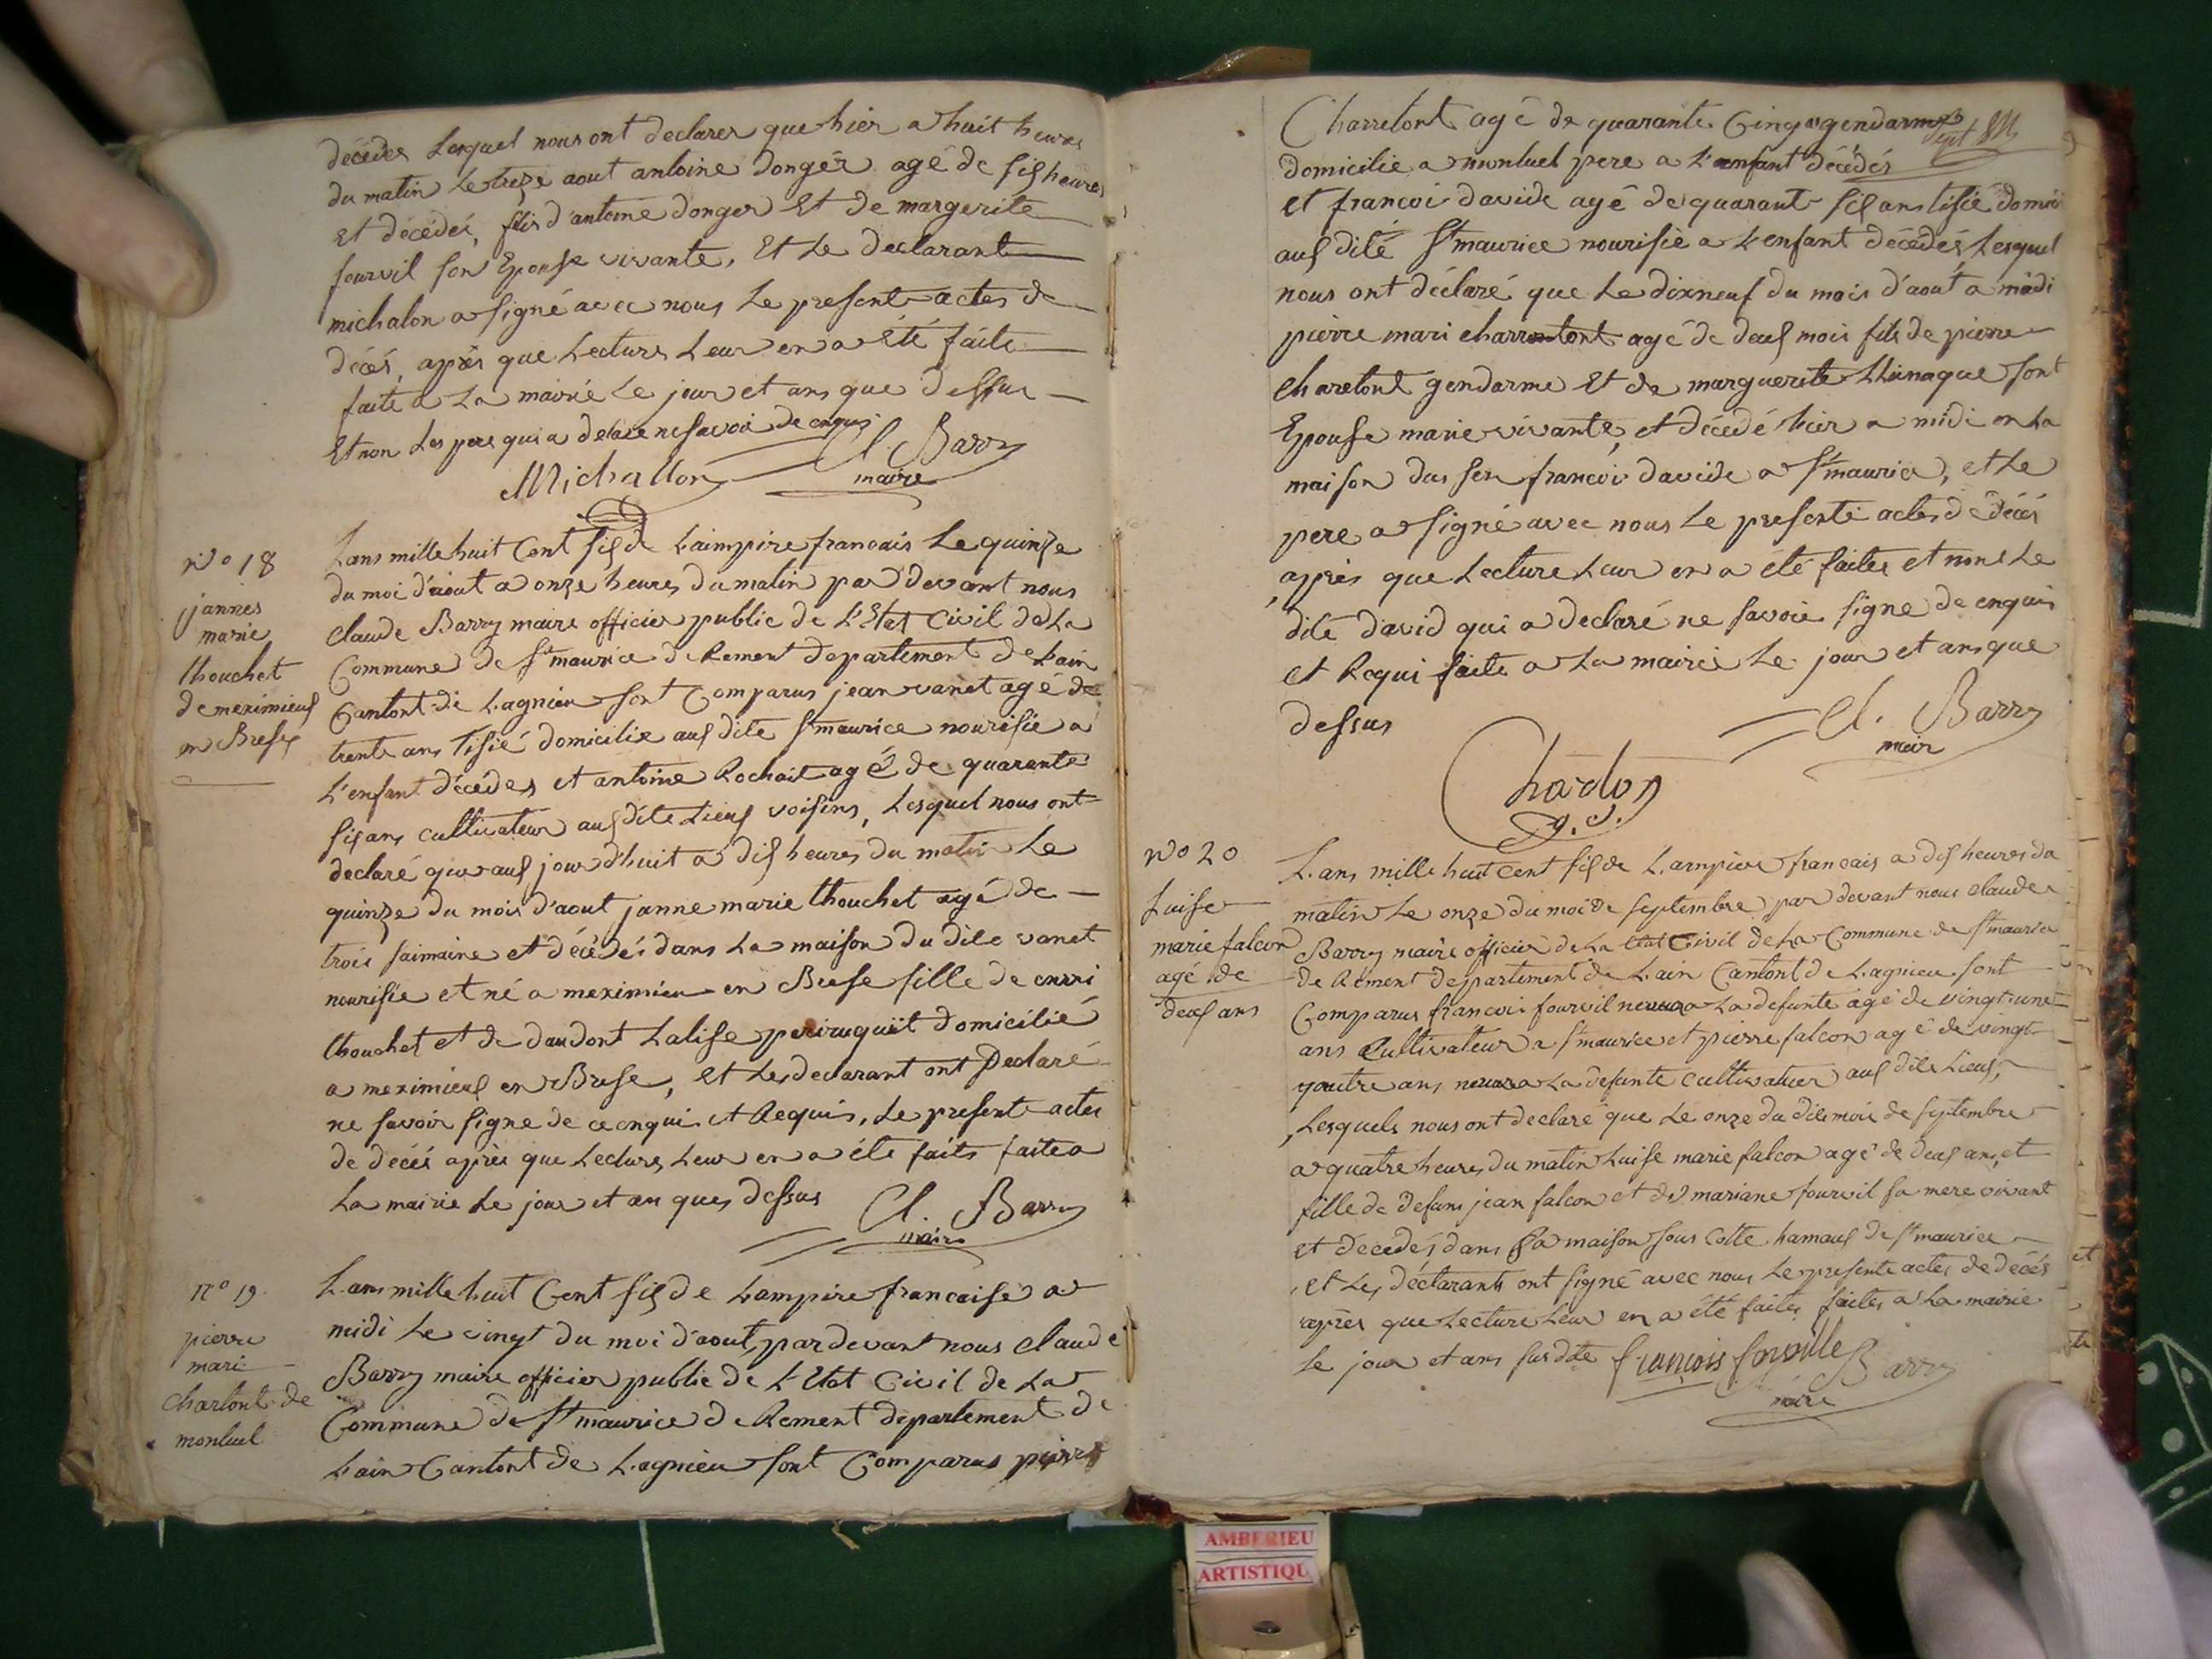 décédes Lesquel nous ont declarer que hier a huit heures
du matin Le treze aout antoine Donger agé de sis heures
Et décédés, fils d'antoine donger Et de margerite
fourvil son Epouse vivante, Et Le declarant
michalon a signé avec nous Le present actes de
décés, après que Lecture Leur en a Eté faite
faite a La mairie Le jour et ans que dessus
Et non Les pere qui a declaré ne savoir de enquis
Michallon Cl Barry
maire
No 18
jannes
marie
thouchet
de meximieus
en Bresse
Lans mille huit Cent sis de Laimpire francais Le quinze
du moi d'aout a onze heures du matin par devant nous
claude Barry maire officier public de L'Etat Civil de La
Commune de St maurice de Rement departement de Lain
Cantont de Lagnieu sont Comparus jean vanet agé de
trente ans tisié domicilie aus dite St maurice nourisie a
L'enfant décédes et antoine Rochait agé de quarante
sis ans cultivateur aus dite Lieus voisins, Lesquel nous ont
declaré que aus jour d'huit a dis heures du matin Le
quinze du mois d'aout janne marie thouchet agé de
trois saimaine et décédés dans La maison du dite vanet
nourisie et né a meximieu en Bresse fille de enrri
thouchet et de daudont Lalise peiruquit domicilié
a meximieus en Bresse, Et Les declarant ont Declaré
ne savoir signe de ce enqui et Requis, Le present actes
de décés après que Lecture Leur en a été faits faite a
La mairie Le jour et an ques dessus Cl. Barry
maire
no 19
pierre
mari
charlont de
monluel
L.ans mille huit Cent sis de Lampire francaise a
midi Le vingt du moi d'aout, par devant nous claude
Barry maire officier public de L'Etat Civil de La
Commune de St maurice de Rement departement de
Lain Cantont de Lagnieu sont Comparus pierre
Charretont agé de quarante Cinq gendarme
domicilie a monluel pere a L'enfant décédés
et francoi davide agé de quarant sis ans tisié domici
aus dité St maurice nourisié a L'enfant décédés Lesquel
nous ont déclaré que Le dixneuf du mois d'aout a midi
pierre mari charretont agé de deus mois fils de pierre
charetont gendarme Et de marguerite Lhinaque sont
Epouse marie vivante, et décédé hier a midi en La
maison du sen francoi davide a St maurice, et Le
pere a signé avec nous Le presente actes de décés
après que Lecture Leur en a été faites et non Le
dité david qui a declaré ne savoir signe de enquis
et Requi faite a La mairie Le jour et ans que
dessus
Cl. Barry
mair
Chardon
No 20
Luise
marie falcon
agé de
deus ans
L.ans mille huit cent sis de L'ampire francais a dis heures du
matin Le onze du moi de septembre par devant nous claude
Barry maire officier de La Etat Civil de La Commune de St maurice
de Rement departement de L.ain Cantont de Lagnieu sont
Comparus francoi fourvil neveu a La defunte agé de vingt une
ans Cultivateur a St maurice et pierre falcon agé de vingt
quatre ans neveu a La defunte cultivateur aus dite Lieus,
Lesquels nous ont declaré que Le onze du dite mois de septembre
a quatre heures du matin Luise marie falcon agé de deus ans, et
fille de defunt jean falcon et de mariane fourvil sa mere vivant
et décédés dans sa maison sous Colte hamaus de St maurice
et Les déclarants ont signé avec nous Le presente actes de décés
après que Lecture Leur en a été faites faites a La mairie
Le jour et ans sus dite francois forville Barry
maire
AMBERIEU
ARTISTIQU